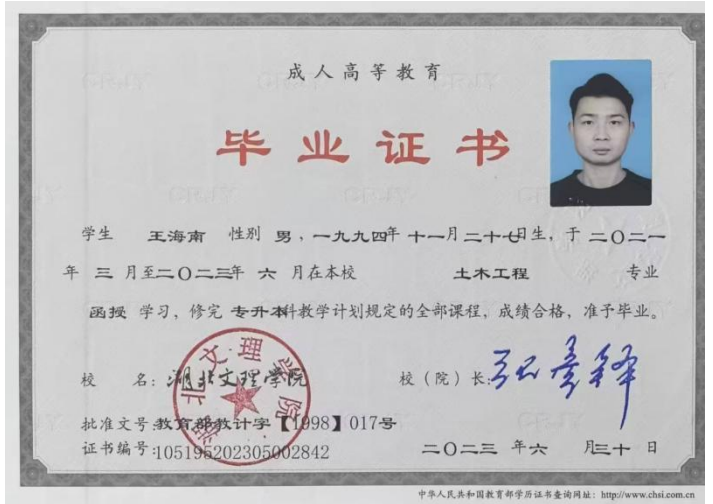 成人高等教育
毕业证书
学生 王海南 性别 男，一九九四年十一月二十七日生，于二〇二一
年 三 月至二〇二三年 六 月在本校 土木工程 专业
函授 学习，修完 专升本科教学计划规定的全部课程，成绩合格，准予毕业。
校 名：湖北文理学院 校（院）长：
湖北文理学院
批准文号：教育部教计字【1998】017号
证书编号：105195202305002842 二〇二三 年六 月三十 日
中华人民共和国教育部学历证书查询网址：http://www.chsi.com.cn